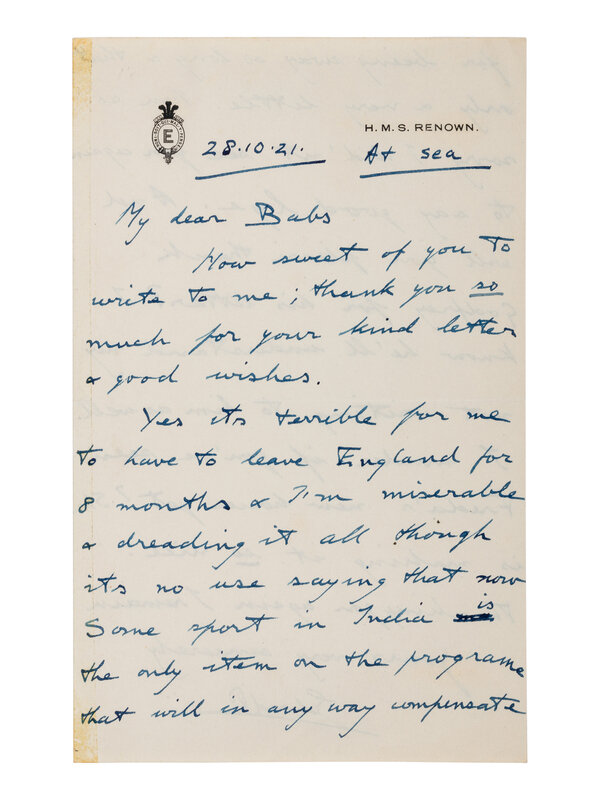 E
H.M.S. RENOWN.
28.10.21. At sea
My dear Babs
How sweet of you to
write to me; thank you so
much for your kind letter
& good wishes.
Yes its terrible for me
to have to leave England for
8 months & I'm miserable
& dreading it all though
its no use saying that now
Some sport in India is
the only item on the programe
that will in any way compensate